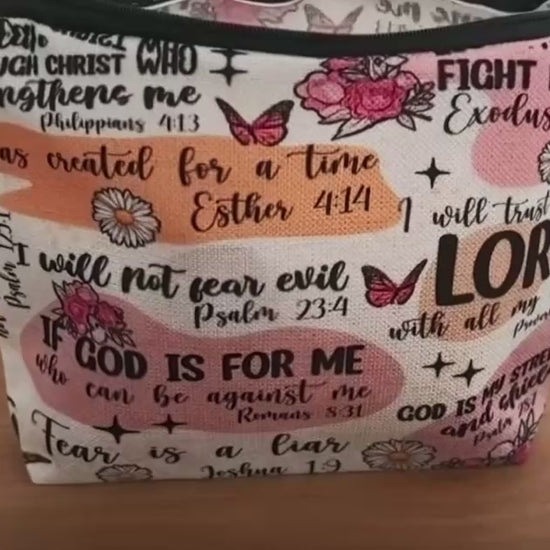 UGH CHRIST WHO
ngthens me
Philippians 4:13
FIGHT
Exodus
as created for a time
Esther 4:14
I will trust
LOR
with all my
I will not fear evil
Psalm 23:4
IF GOD IS FOR ME
who can be against me
Romans 8:31
GOD IS MY STRE
and shie
Psalm
Fear is a liar
Joshua 1:9
Psalm